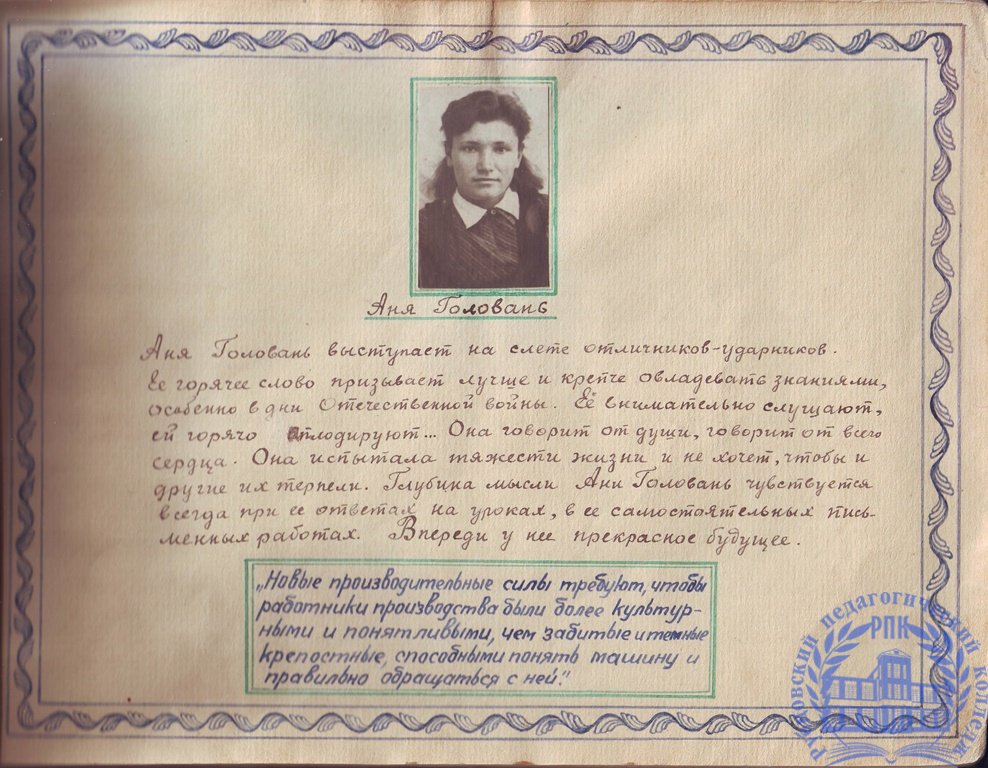 Аня Головань
Аня Головань выступает на слете отличников-ударников.
Ее горячее слово призывает лучше и крепче овладевать знаниями,
особенно в дни Отечественной войны. Её внимательно слушают,
ей горячо аплодируют... Она говорит от души, говорит от всего
сердца. Она испытала тяжести жизни и не хочет, чтобы и
другие их терпели. Глубина мысли Ани Головань чувствуется
всегда при ее ответах на уроках, в ее самостоятельных пись-
менных работах. Впереди у нее прекрасное будущее.
„Новые производительные силы требуют, чтобы
работники производства были более культур-
ными и понятливыми, чем забитые и темные
крепостные, способными понять машину и
правильно обращаться с ней."
педагогический колледж
РПК